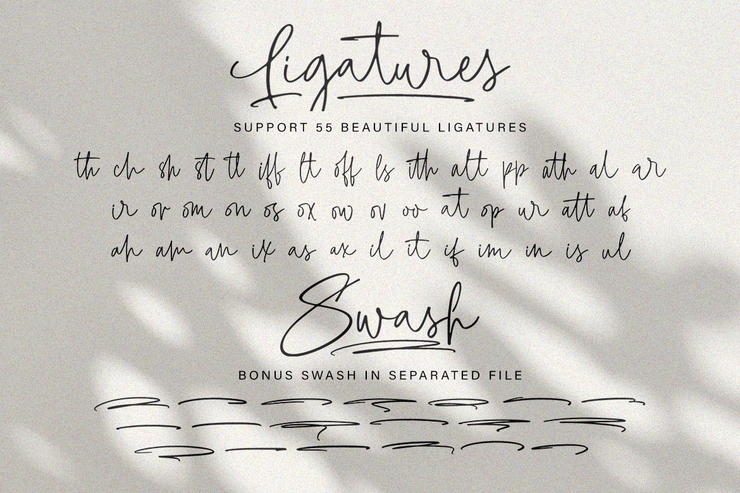 Ligatures
SUPPORT 55 BEAUTIFUL LIGATURES
th ch sh st tl iff lt off ls ith alt pp ath al ar
ir or om on os ox ow ov oo at op ur att af
ah am an ix as ax il it if im in is ul
Swash
BONUS SWASH IN SEPARATED FILE